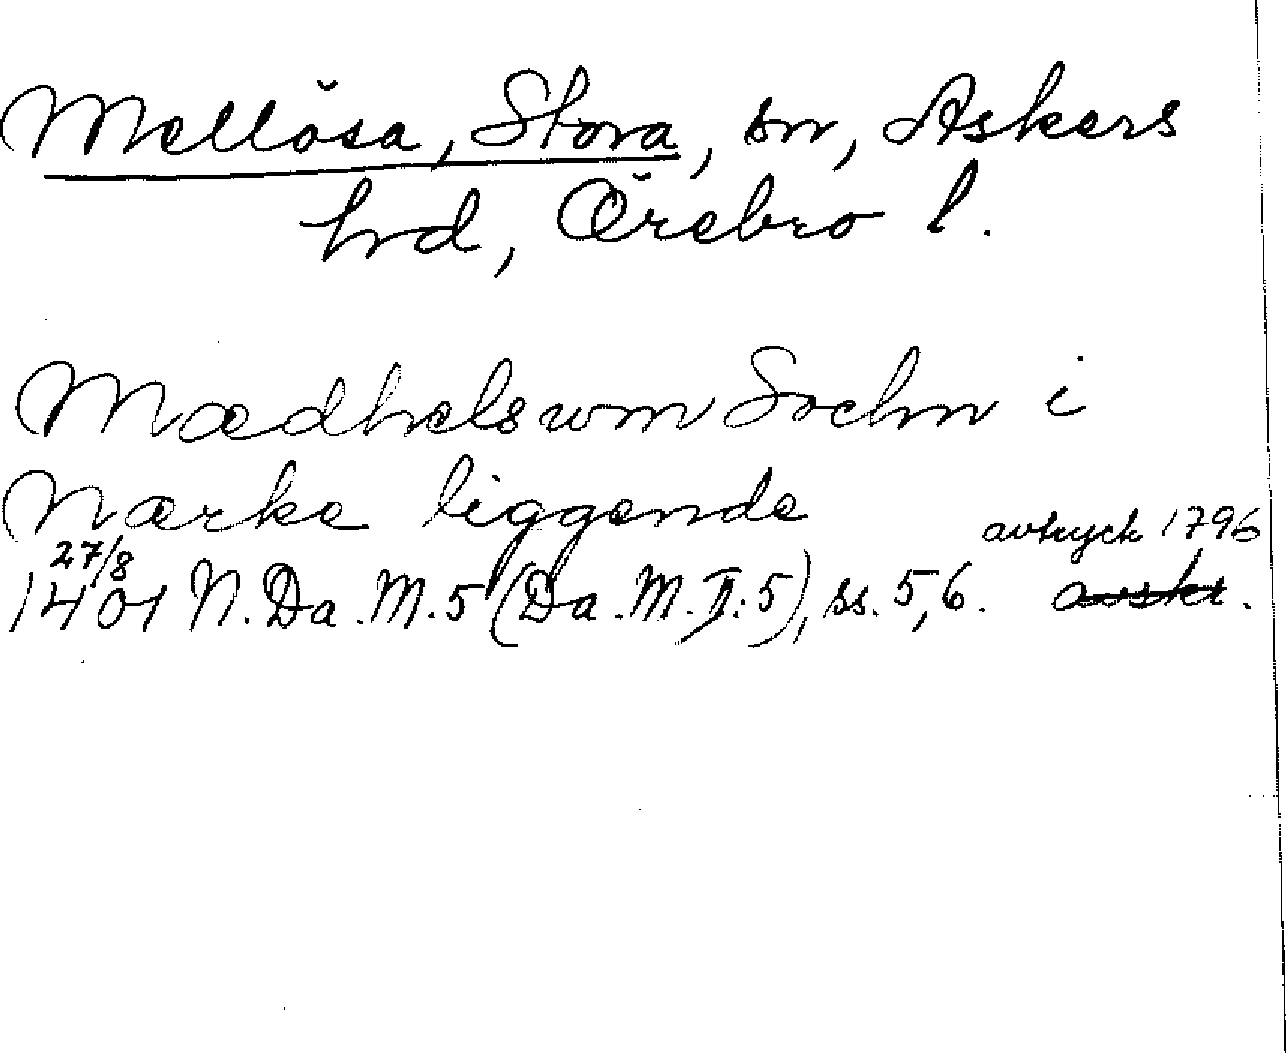 Mellösa, Stora, sn, Askers
hrd, Örebro l.
Mædhelswm Sochn i
Nærke liggende
avtryck 1796
27/8
1401 N. Da. M. 5 (Da. M. II: 5), ss. 5, 6. avskr.